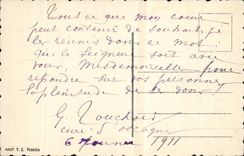 Tout ce que mon coeur
peut contenir de souhaits, je
les réunis dans ce mot :
que le Seigneur soit avec
vous, Mademoiselle, pour
répandre sur vos personnes
la plénitude de ses dons !
G. Touchard
curé
6 Janvier 1911